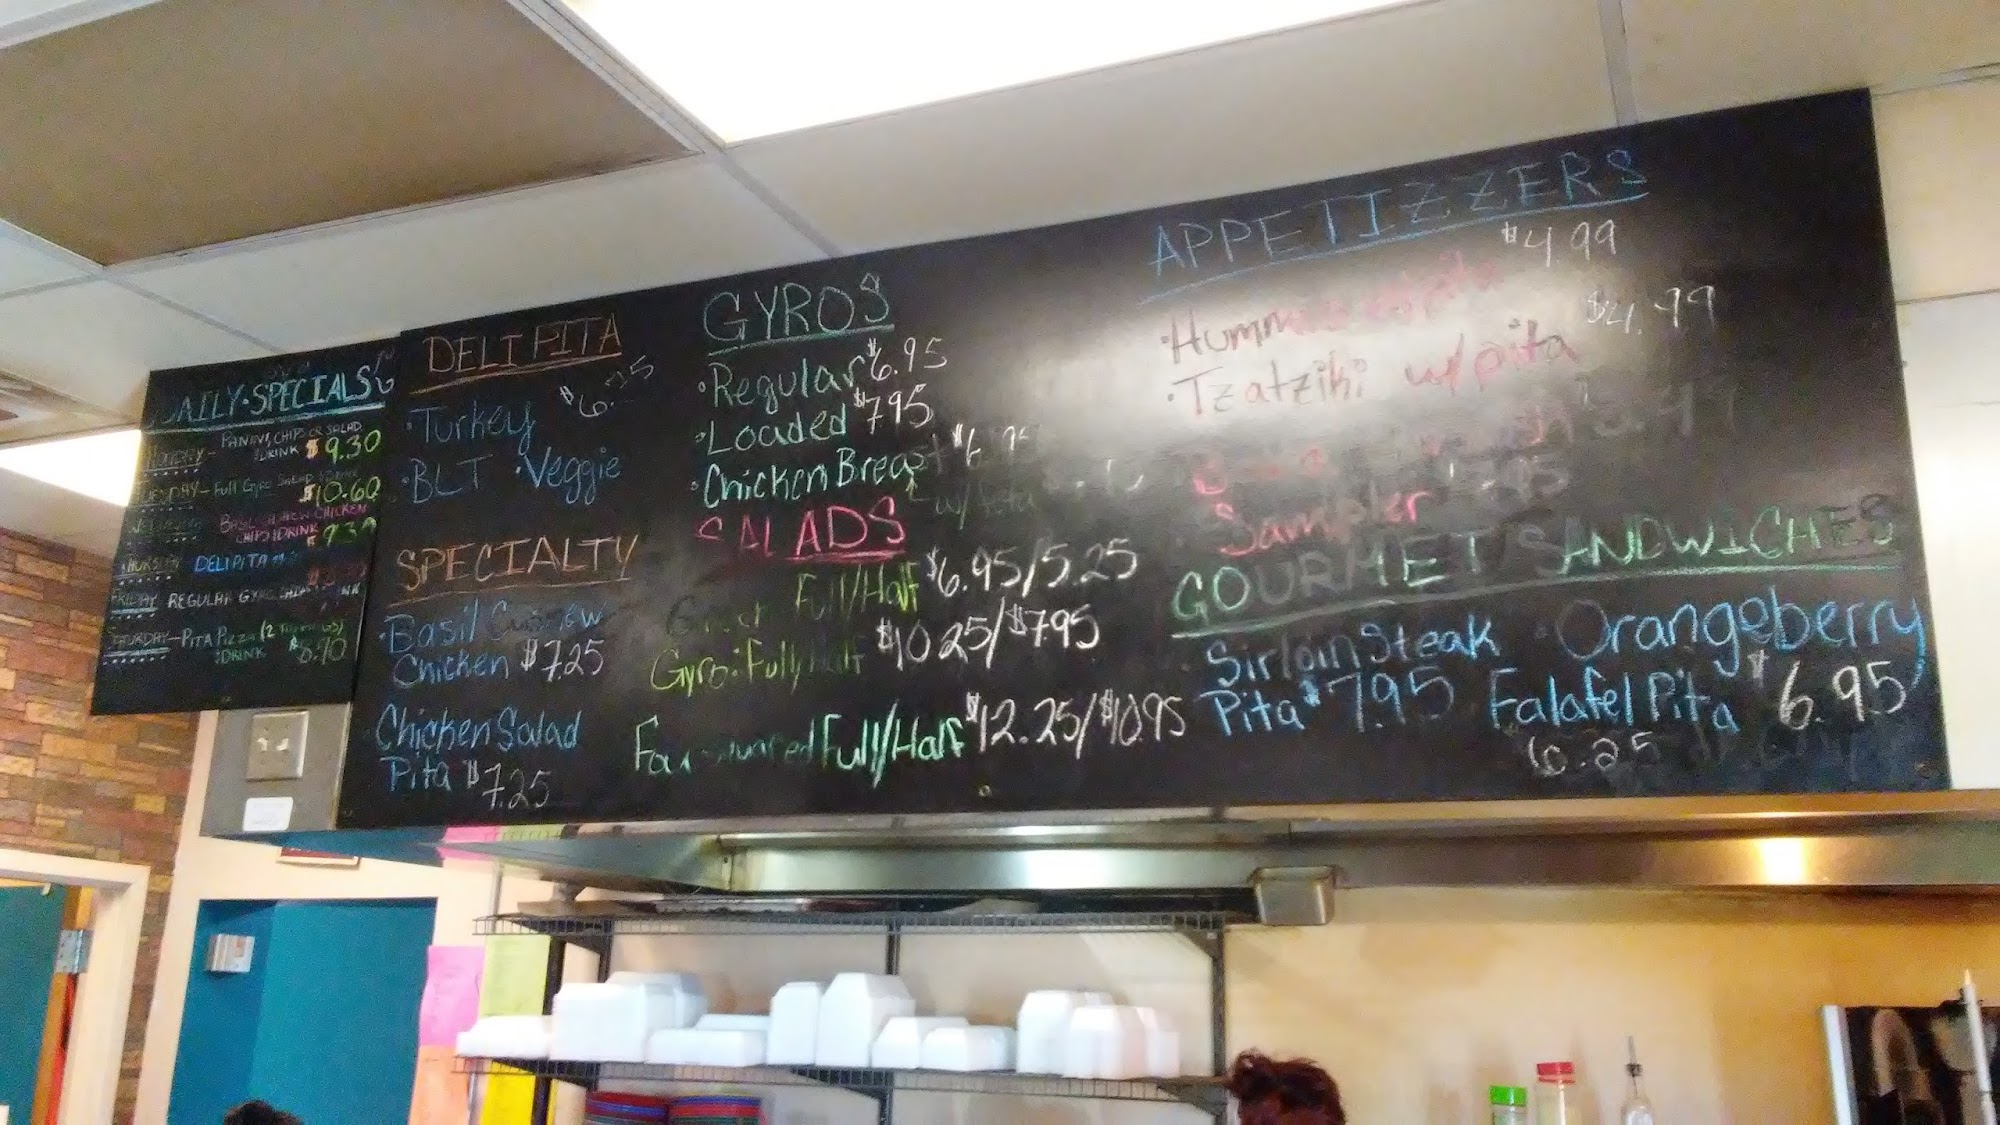 DAILY SPECIALS
MONDAY - PANINI, CHIPS OR SALAD
DRINK $9.30
TUESDAY - FULL GYRO SALAD
$10.60
BASIL CASHEW CHICKEN
CHIPS DRINK $9.39
THURSDAY DELI PITA
FRIDAY - REGULAR GYRO
SATURDAY - PITA PIZZA (2 TOPPINGS)
DRINK
DELI PITA
• Turkey $6.25
• BLT • Veggie
SPECIALTY
• Basil Cashew
Chicken $7.25
Chicken Salad
Pita $7.25
GYROS
• Regular $6.95
• Loaded $7.95
• Chicken Breast $6.95
w/ Pita
SALADS
Greek Full/Half $6.95/5.25
Gyro: Full/Half $10.25/$7.95
Full/Half $12.25/$10.95
APPETIZZERS
• Hummus w/pita $4.99
• Tzatziki w/pita $4.99
Sampler
GOURMET SANDWICHES
Sirloin Steak
Pita $7.95
• Orangeberry
Falafel Pita $6.95
6.25